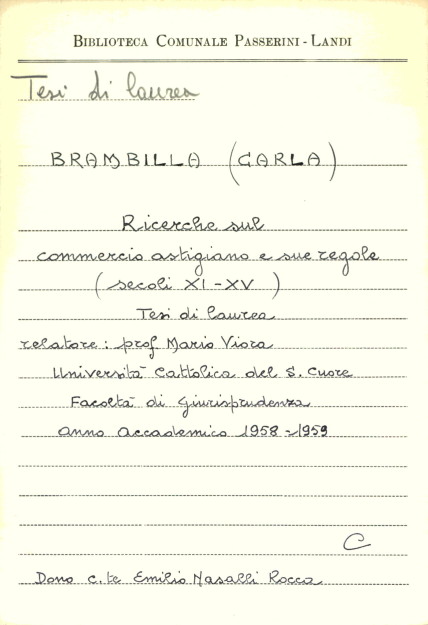 BIBLIOTECA COMUNALE PASSERINI - LANDI
Tesi di laurea
BRAMBILLA (CARLA)
Ricerche sul
commercio astigiano e sue regole
(secoli XI - XV)
Tesi di laurea
relatore: prof. Mario Viora
Università Cattolica del S. Cuore
Facoltà di Giurisprudenza
Anno Accademico 1958-1959
C
Dono c.te Emilio Nasalli Rocca